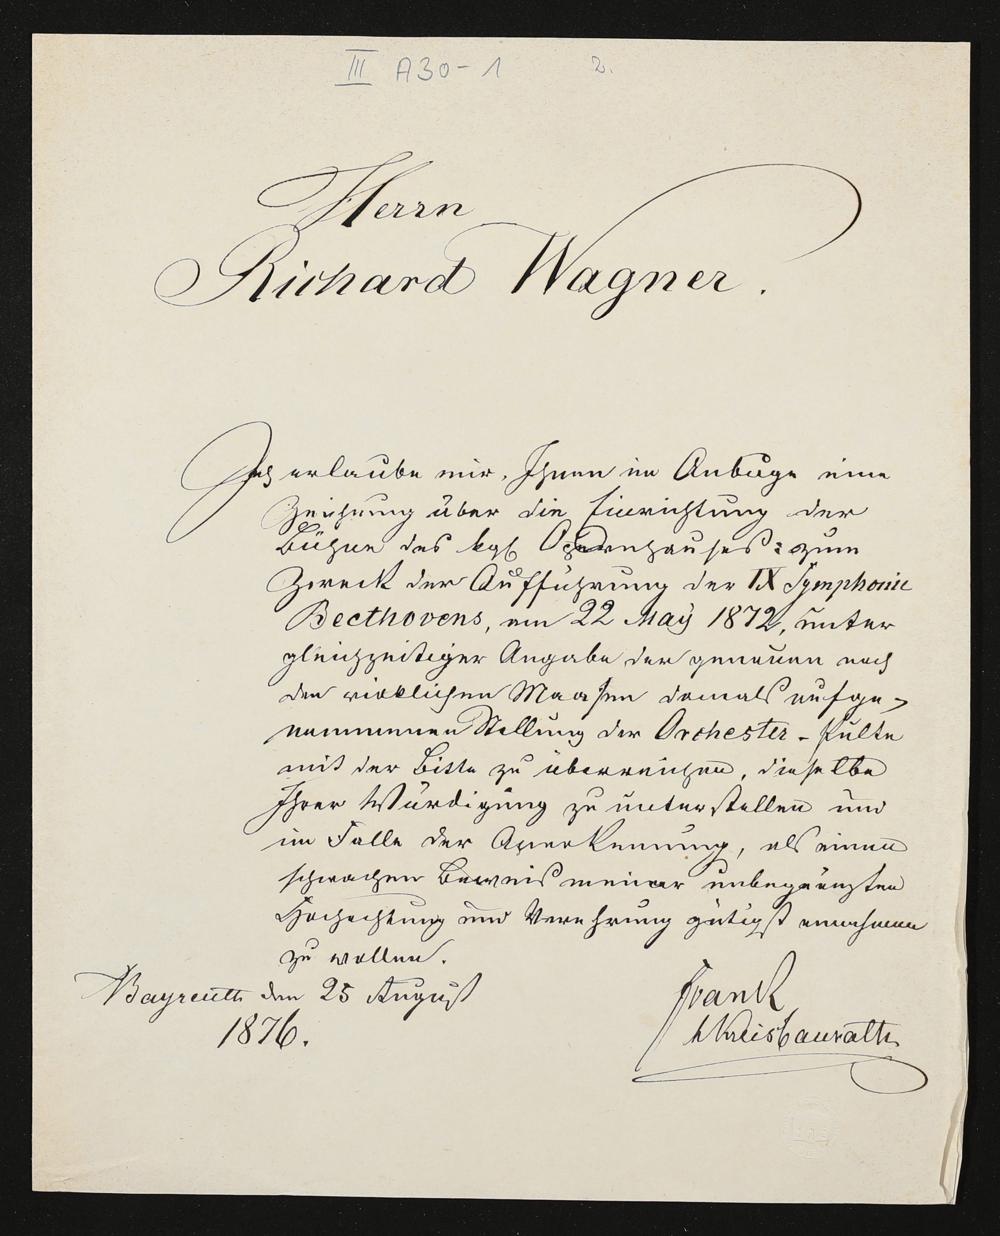 III A30-1 2.
Herrn
Richard Wagner.
Ich erlaube mir, Ihnen im Anbuge eine
Zeichnung über die Einrichtung der
Bühne des kgl. Opernhauses: zum
Zweck der Aufführung der IX Symphonie
Beethovens, am 22 May 1872, unter
gleichzeitiger Angabe der genauen nach
den wirklichen Maasen damals aufge-
nommenen Stellung der Orchester-Pulte
mit der Bitte zu überreichen, dieselbe
Ihrer Würdigung zu unterstellen und
im Falle der Anerkennung, als einen
schwachen Beweis meiner unbegränzten
Hochachtung und Verehrung gütigst annehmen
zu wollen.
Bayreuth den 25 August
1876.
Frank
Kreisbaurath